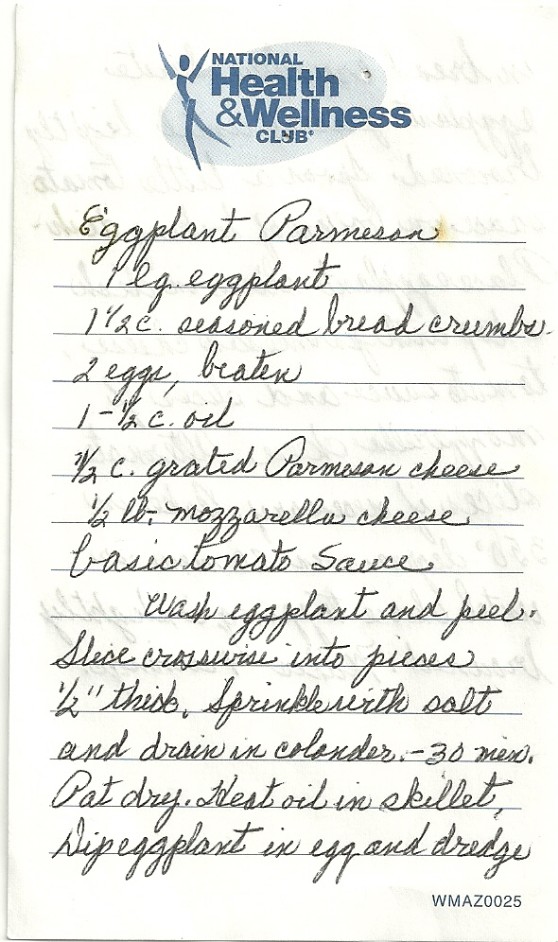 NATIONAL
Health
&Wellness
CLUB®
Eggplant Parmeson
1 lg. eggplant
1 1/2 c. seasoned bread crumbs.
2 eggs, beaten
1-1/2 c. oil
1/2 c. grated Parmeson cheese
1/2 lb. mozzarella cheese
basic tomato Sauce
Wash eggplant and peel.
Slice crosswise into pieces
1/2" thick. Sprinkle with salt
and drain in colander.-30 min.
Pat dry. Heat oil in skillet,
Dip eggplant in egg and dredge
WMAZ0025